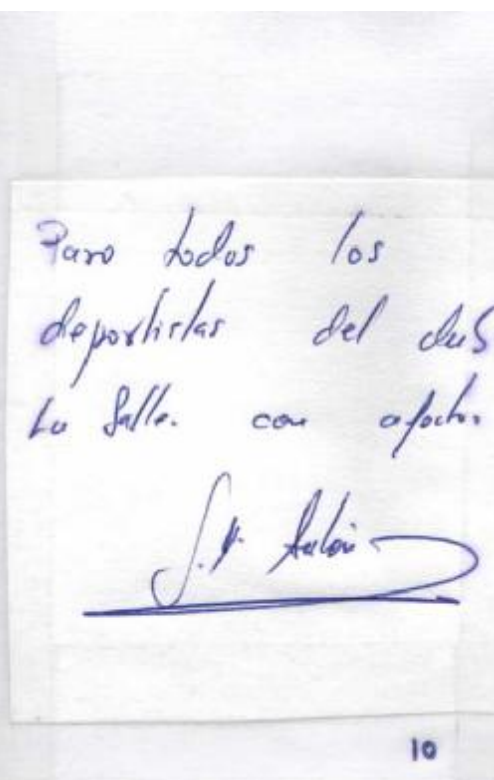 Para todos los
deportistas del club
La Salle. con afecto.
10